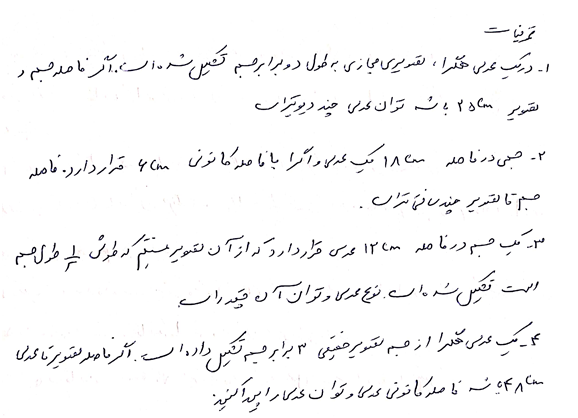 تمرینات
۱- در یک عدسی همگرا، تصویری مجازی به طول دو برابر جسم تشکیل شده است. اگر فاصله جسم و
تصویر ۲۵cm باشد توان عدسی چند دیوپتر است
۲- جسمی در فاصله ۱۸cm یک عدسی واگرا با فاصله کانونی ۶cm قرار دارد. فاصله
جسم تا تصویر چند سانتی متر است.
۳- یک جسم در فاصله ۱۲cm عدسی قرار دارد که از آن تصویر مستقیم که طولش ۱/۲ طول جسم
است تشکیل شده است. نوع عدسی و توان آن چقدر است.
۴- یک عدسی همگرا از جسم تصویر حقیقی ۳ برابر جسم تشکیل داده است. اگر فاصله تصویر تا عدسی
۴۸cm باشد فاصله کانونی عدسی و توان عدسی را پیدا کنید.